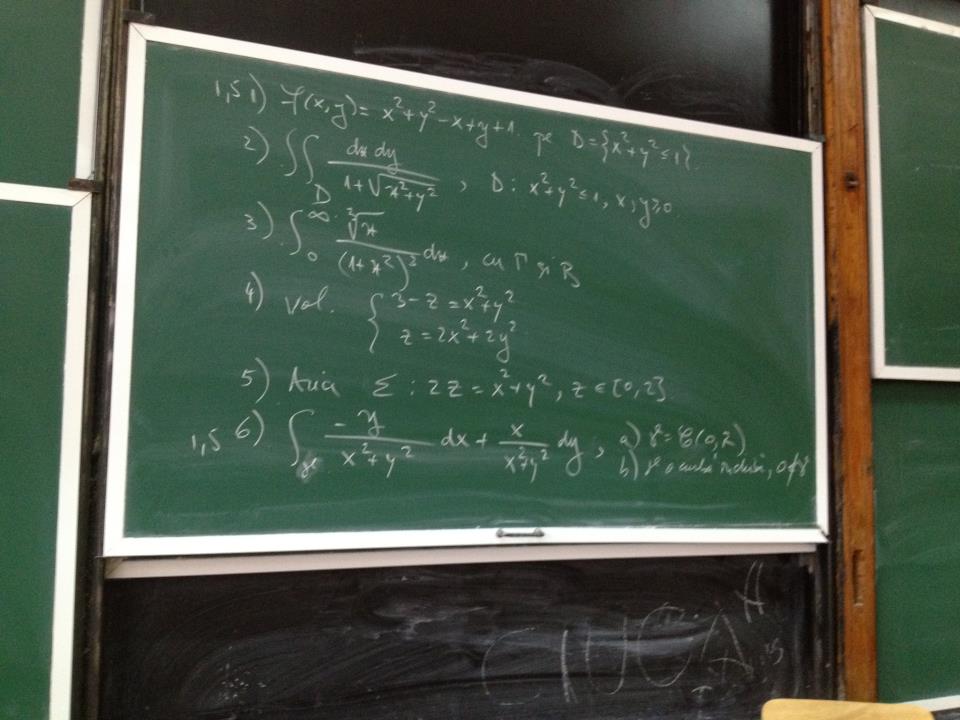 1,5 1) f(x,y) = x² + y² - x + y + 1. pe D = {x² + y² ≤ 1}.
2) ∬_D dx dy / (1 + √(x² + y²)), D: x² + y² ≤ 1, x, y ≥ 0
3) ∫₀^∞ ∛x / (1 + x²)² dx, cu Γ și B
4) Vol. { 3 - z = x² + y²
z = 2x² + 2y²
5) Aria Σ: 2z = x² + y², z ∈ [0, 2].
1,5 6) ∫_γ -y / (x² + y²) dx + x / (x² + y²) dy, a) γ = C(0, 2)
b) γ o curbă închisă, 0 ∉ γ
CIUCA